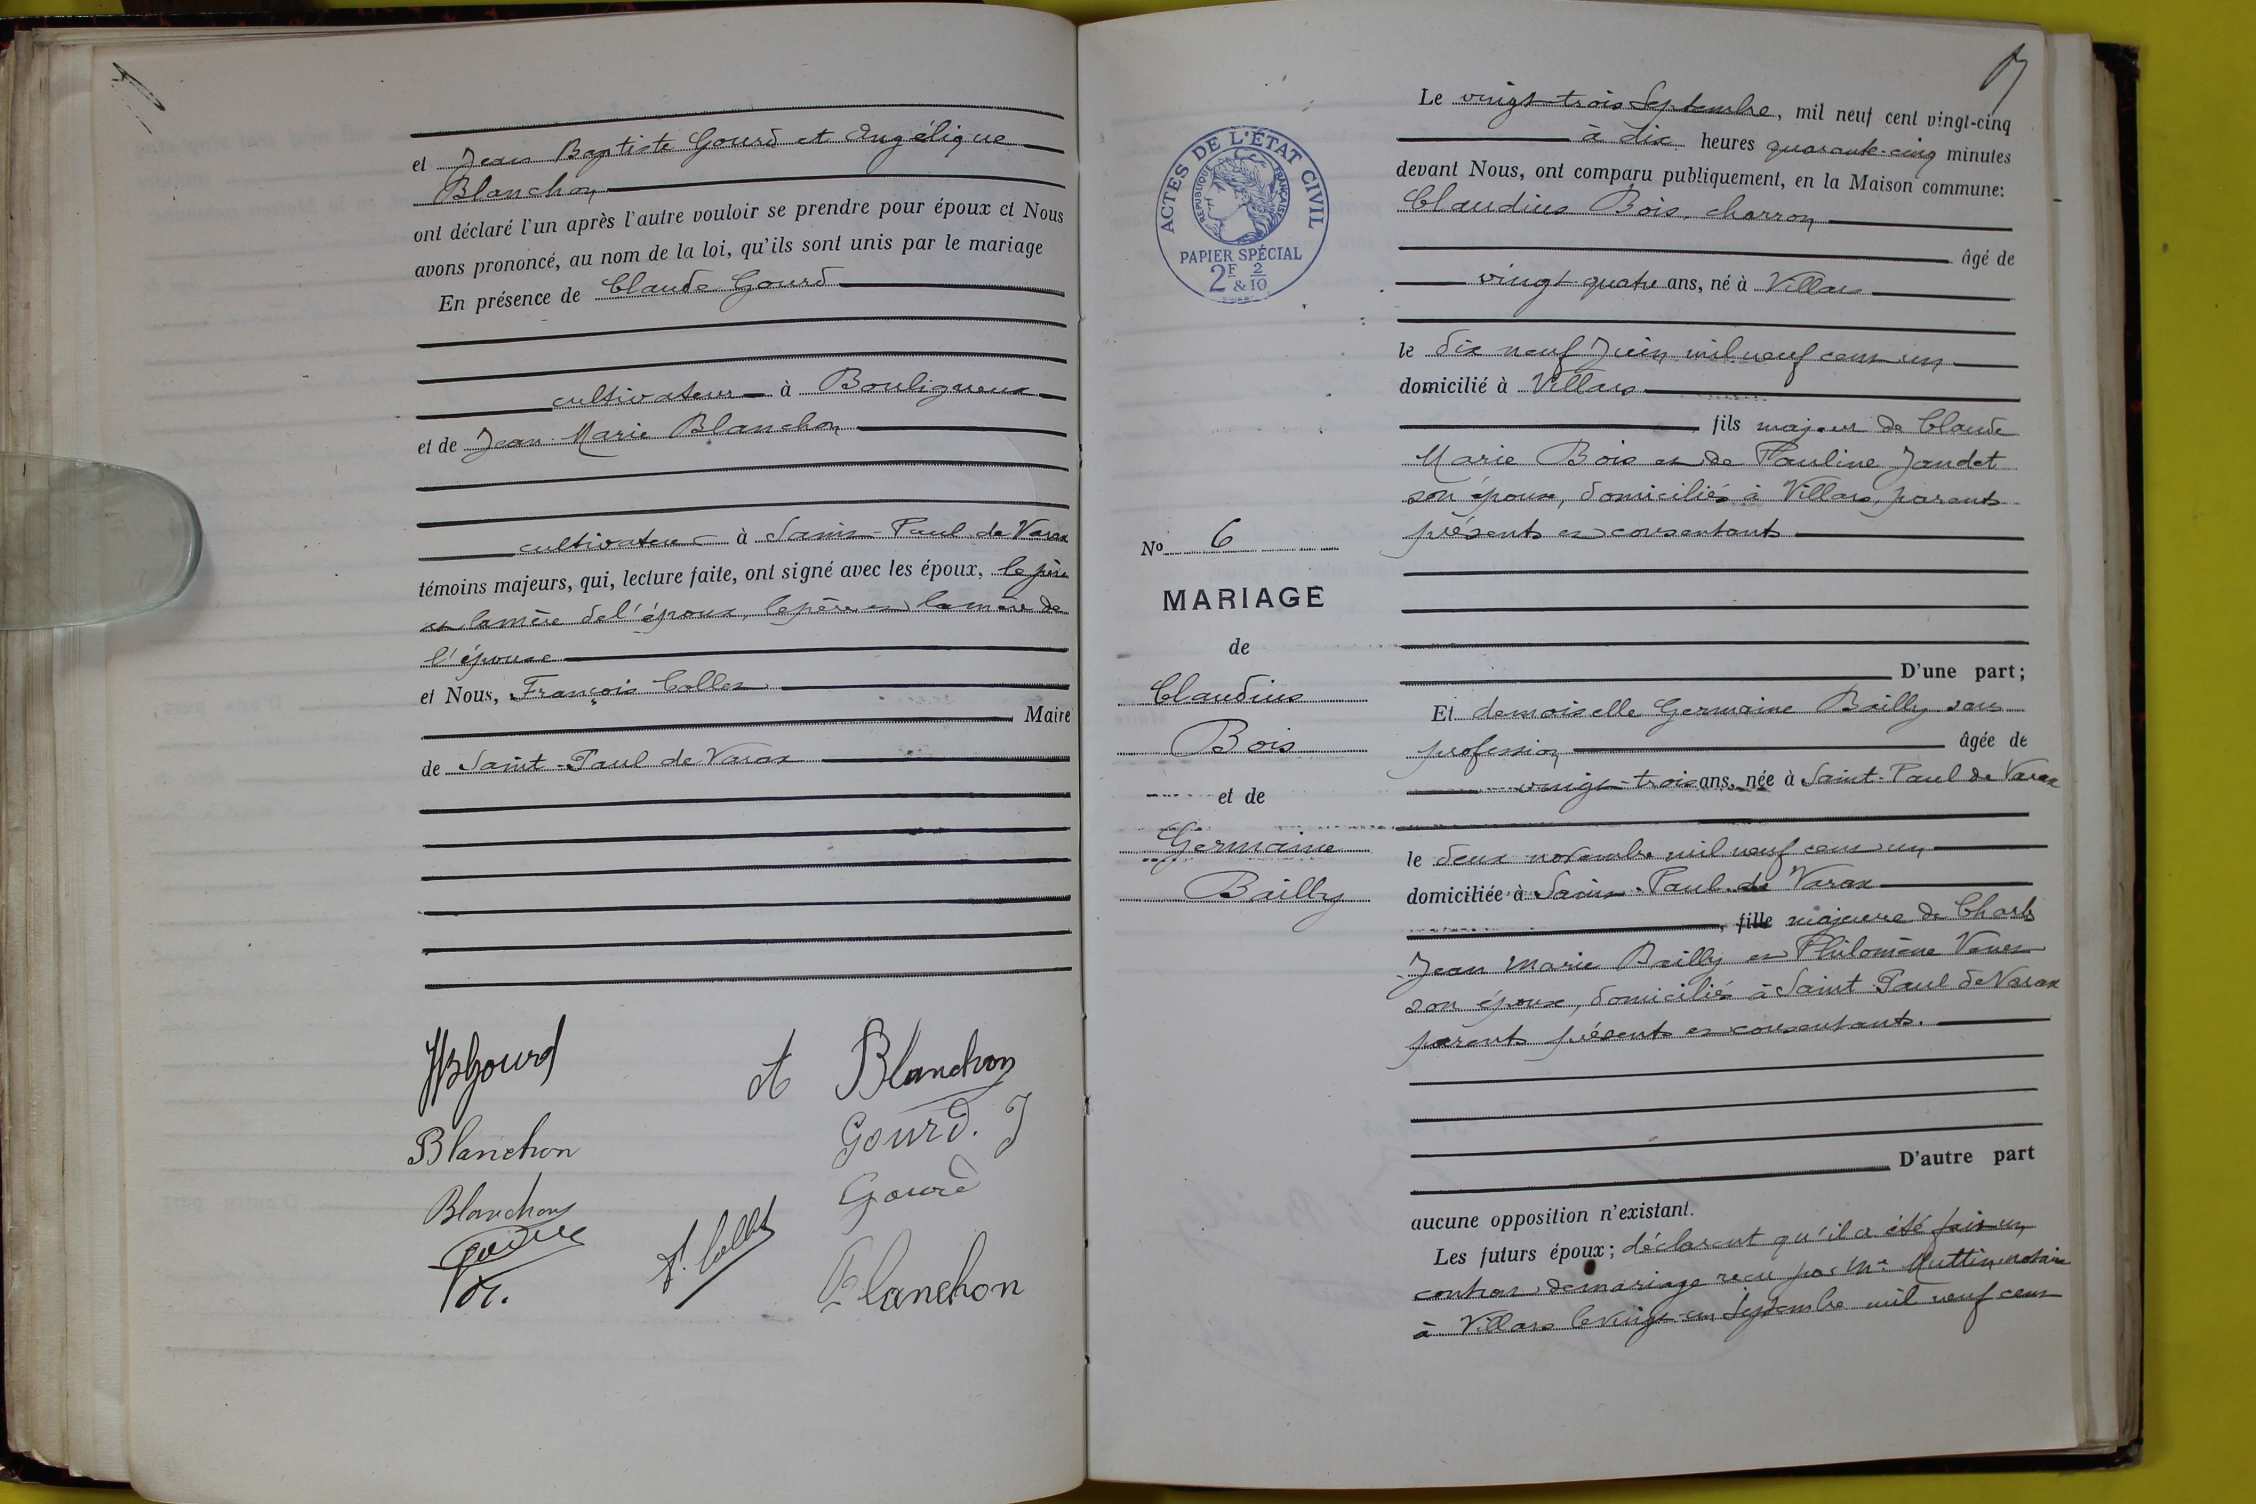 et Jean Baptiste Gourd et Angélique
Blanchon
ont déclaré l'un après l'autre vouloir se prendre pour époux et Nous
avons prononcé, au nom de la loi, qu'ils sont unis par le mariage
En présence de Claude Gourd
cultivateur à Bouligneux
et de Jean Marie Blanchon
cultivateur à Saint-Paul de Varax
témoins majeurs, qui, lecture faite, ont signé avec les époux, le père
et la mère de l'époux, le père et la mère de
l'épouse
et Nous, François Collet
Maire
de Saint-Paul de Varax
JB Gourd
A Blanchon
Gourd. J
Blanchon
Gourd
Blanchon
F. Collet
Blanchon
ACTES DE L'ÉTAT CIVIL
RÉPUBLIQUE FRANÇAISE
PAPIER SPÉCIAL
2F 2/10
&
No 6
MARIAGE
de
Claudius
Bois
et de
Germaine
Bailly
Le vingt-trois Septembre, mil neuf cent vingt-cinq
à dix heures quarante-cinq minutes
devant Nous, ont comparu publiquement, en la Maison commune:
Claudius Bois, charron
âgé de
vingt-quatre ans, né à Villars
le dix neuf Juin mil neuf cent un
domicilié à Villars
fils majeur de Claude
Marie Bois et de Pauline Jandet
son épouse, domiciliés à Villars, parents
présents et consentants
D'une part;
Et demoiselle Germaine Bailly sans
profession âgée de
vingt-trois ans, née à Saint-Paul de Varax
le deux novembre mil neuf cent un
domiciliée à Saint-Paul de Varax
fille majeure de Charles
Jean Marie Bailly et Philomène
son épouse, domiciliés à Saint Paul de Varax
parents présents et consentants.
D'autre part
aucune opposition n'existant.
Les futurs époux; déclarent qu'il a été fait un
contrat de mariage reçu par Me Muttin notaire
à Villars le vingt un Septembre mil neuf cent